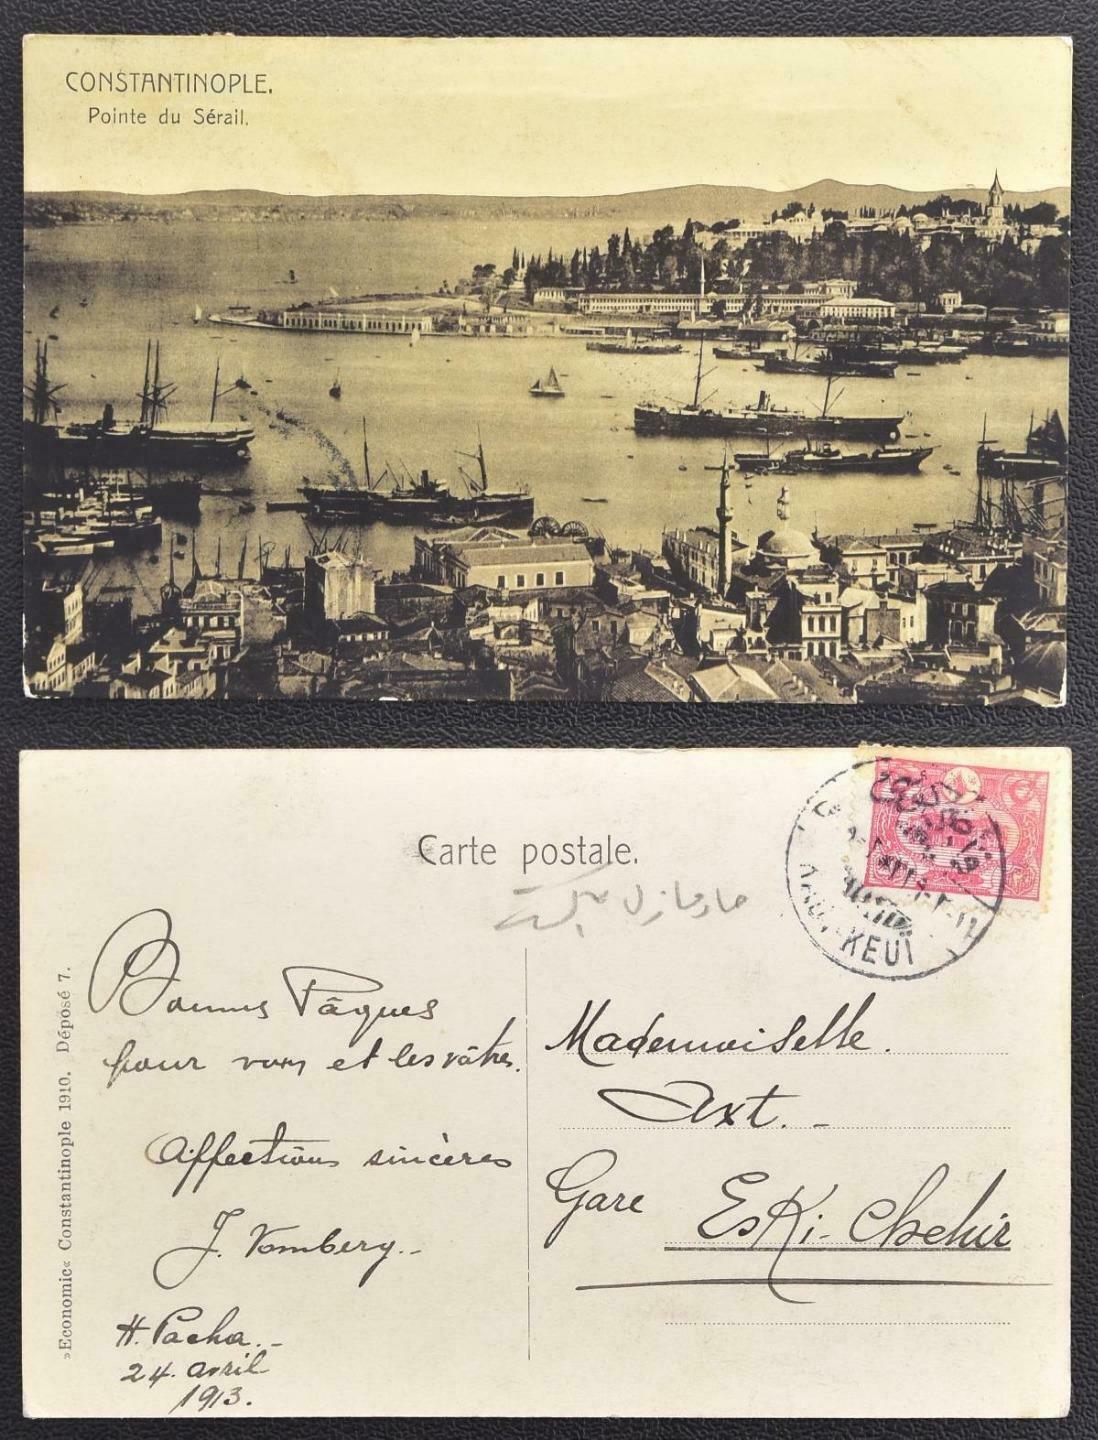 CONSTANTINOPLE.
Pointe du Sérail.
Carte postale.
KEUI
Bonnes Pâques
pour vous et les vôtres.
Affections sincères
J. Vombery.-
H. Pacha.-
24. avril
1913.
Mademoiselle.
Axt.-
Gare Eski-Chehir
»Economic« Constantinople 1910. Déposé 7.